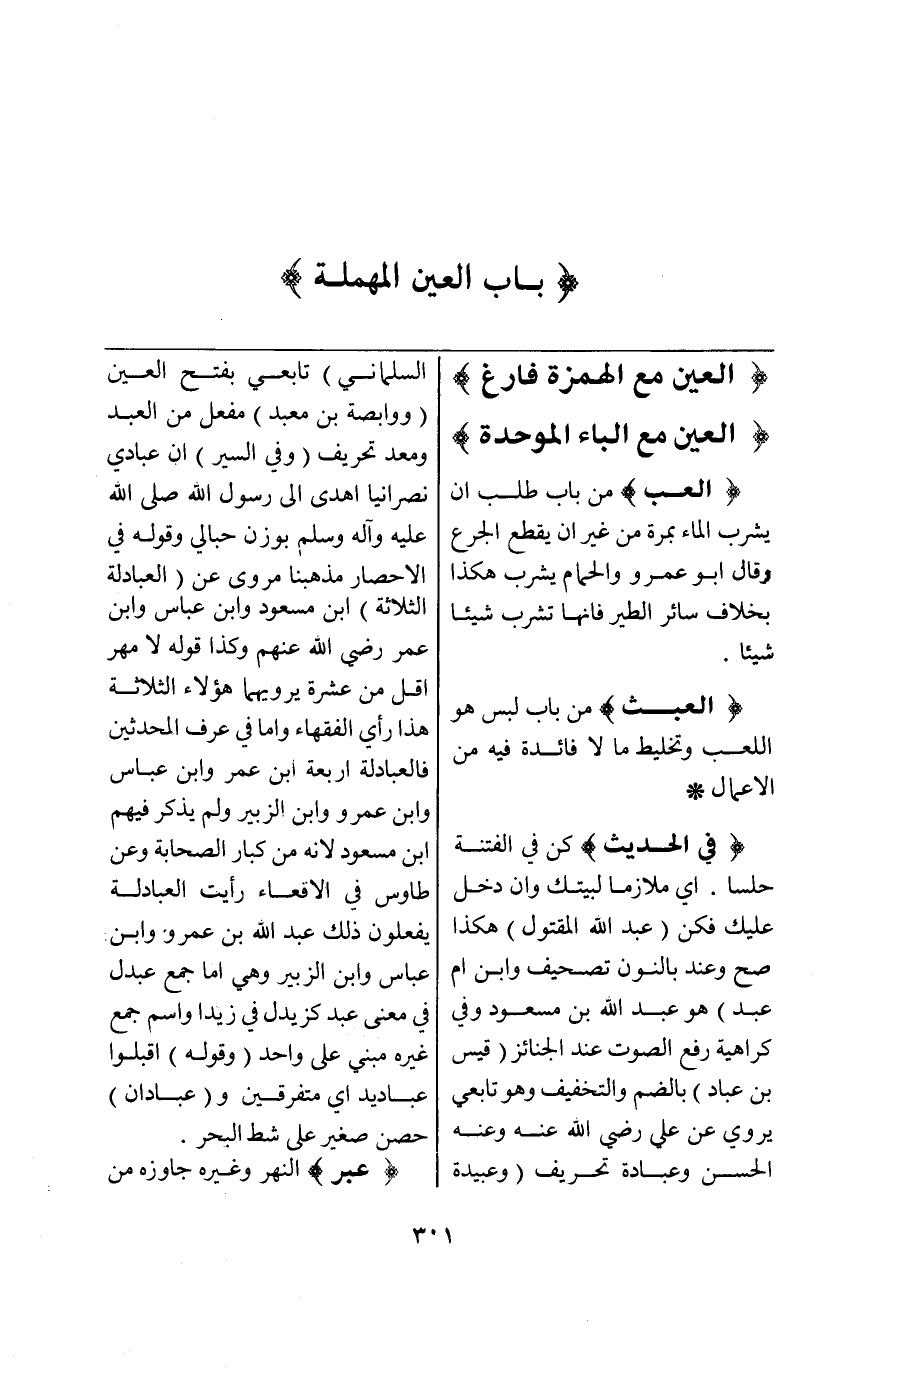 ﴿ بــاب العين المهملــة ﴾
﴿ العين مع الهمزة فارغ ﴾
﴿ العين مع الباء الموحدة ﴾
﴿ العـــب ﴾ من باب طلــب ان
يشرب الماء بمرة من غير ان يقطع الجرع
وقال ابـو عمـرو والحمام يشرب هكذا
بخلاف سائر الطير فانهـا تشرب شيئـا
شيئا .
﴿ العبــــث ﴾ من باب لبس هو
اللعــب وتخليط ما لا فائــدة فيه من
الاعمال *
﴿ في الحــديث ﴾ كن في الفتنــة
حلسا . اي ملازمـا لبيتـك وان دخـل
عليك فكن ( عبد الله المقتول ) هكذا
صح وعند بالنون تصحيف وابـن ام
عبـد ) هو عبــد الله بن مسعــود وفي
كراهية رفع الصوت عند الجنائز ( قيس
بن عباد ) بالضم والتخفيف وهو تابعي
يروي عن علي رضي الله عنــه وعنــه
الحســن وعبــادة تحـريف ( وعبيدة
السلمانــي ) تابعــي بفتــح العــين
( ووابصة بن معبد ) مفعل من العبـد
ومعد تحريف ( وفي السير ) ان عبادي
نصرانيا اهدى الى رسول الله صلى الله
عليه وآله وسلم بوزن حبالي وقولـه في
الاحصار مذهبنا مروى عن ( العبادلة
الثلاثة ) ابن مسعود وابن عباس وابن
عمر رضي الله عنهم وكذا قوله لا مهر
اقـل من عشرة يرويها هؤلاء الثلاثــة
هذا رأي الفقهاء واما في عرف المحدثين
فالعبادلة اربعة ابن عمر وابن عبـاس
وابن عمرو وابن الزبير ولم يذكر فيهم
ابن مسعود لانه من كبار الصحابة وعن
طاوس في الاقعــاء رأيت العبادلــة
يفعلون ذلك عبد الله بن عمرو وابـن
عباس وابن الزبير وهي اما جمع عبدل
في معنى عبد كزيدل في زيدا واسم جمع
غيره مبني على واحد ( وقولـه ) اقبلـوا
عبــاديد اي متفرقــين و ( عبــادان )
حصن صغير على شط البحر .
﴿ عبر ﴾ النهر وغيره جاوزه من
٣٠١